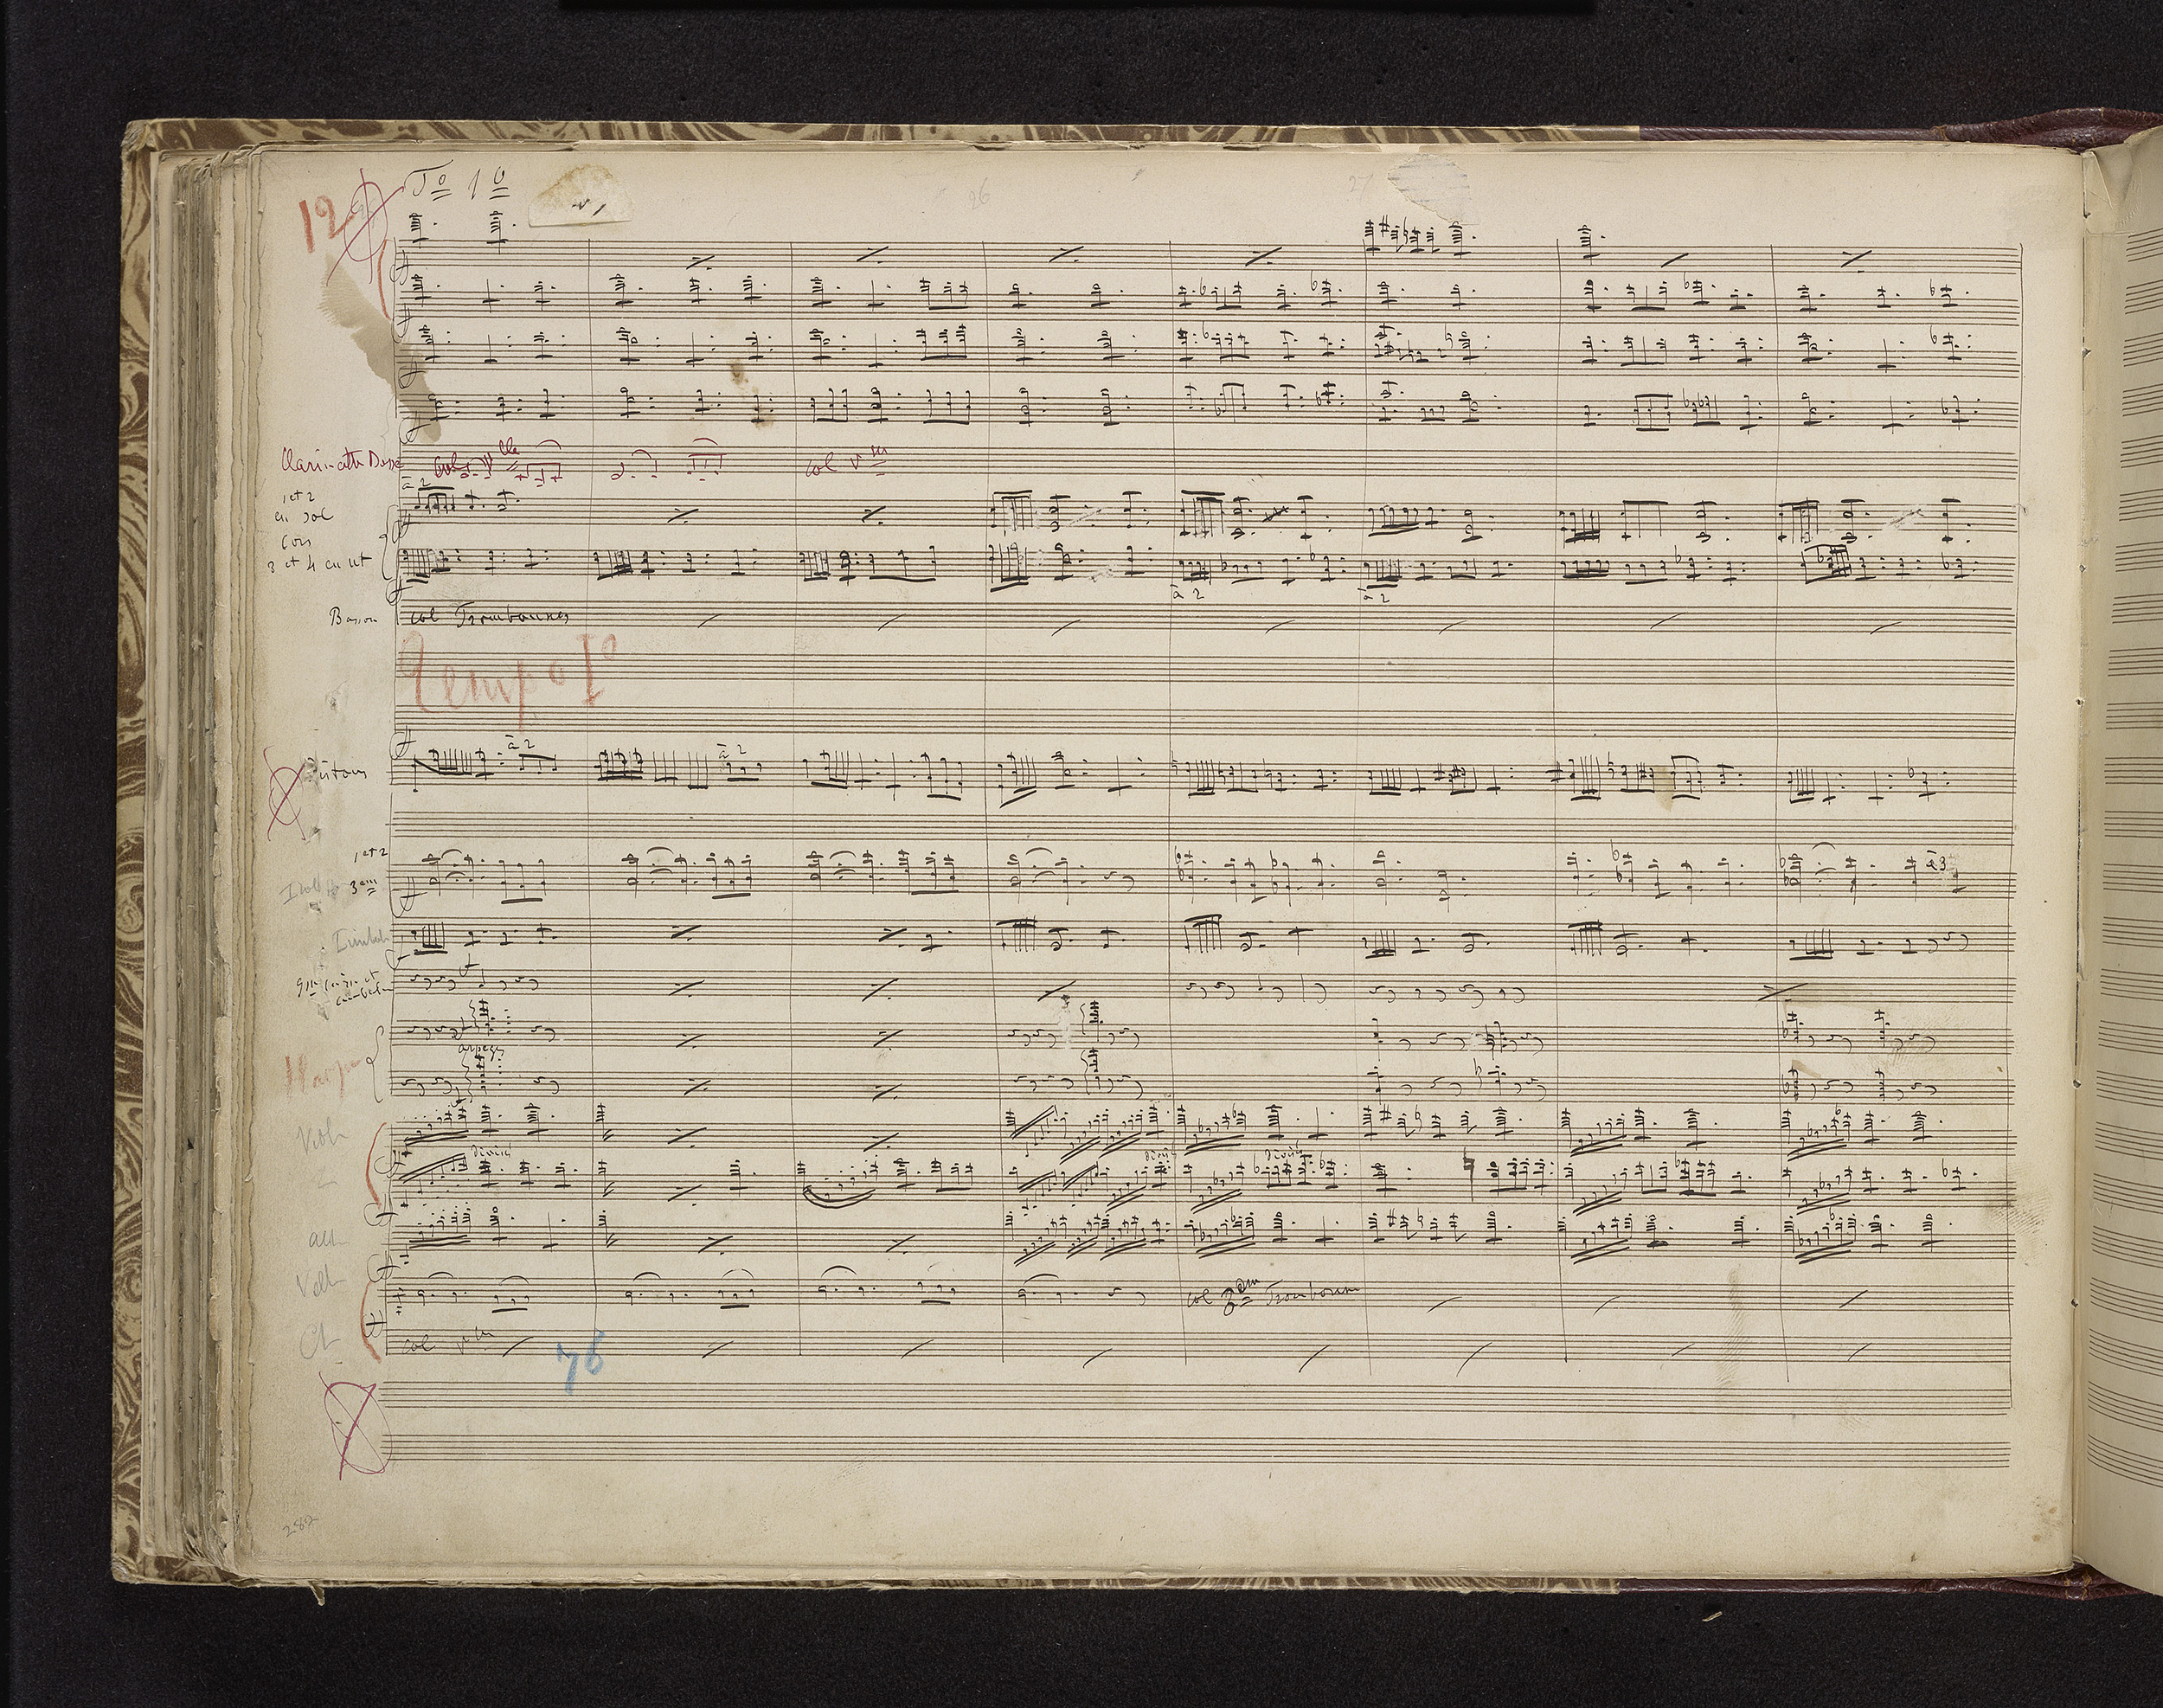 12
To 1o
26
27
Clarinette Basse
col vlle
col vlle
à 2
1 et 2
en sol
Cors
3 et 4 en ut
à 2
à 2
Basson
col Trombones
Tempo Io
Pistons
à 2
à 2
1 et 2
3eme
à 3
Timbal
Gsse caisse et
cimbales
arpege
Harpe
Viol
divisi
divisi
divisi
2
alt
Vell
col 3eme Trombone
Cb
col vlle
76
282